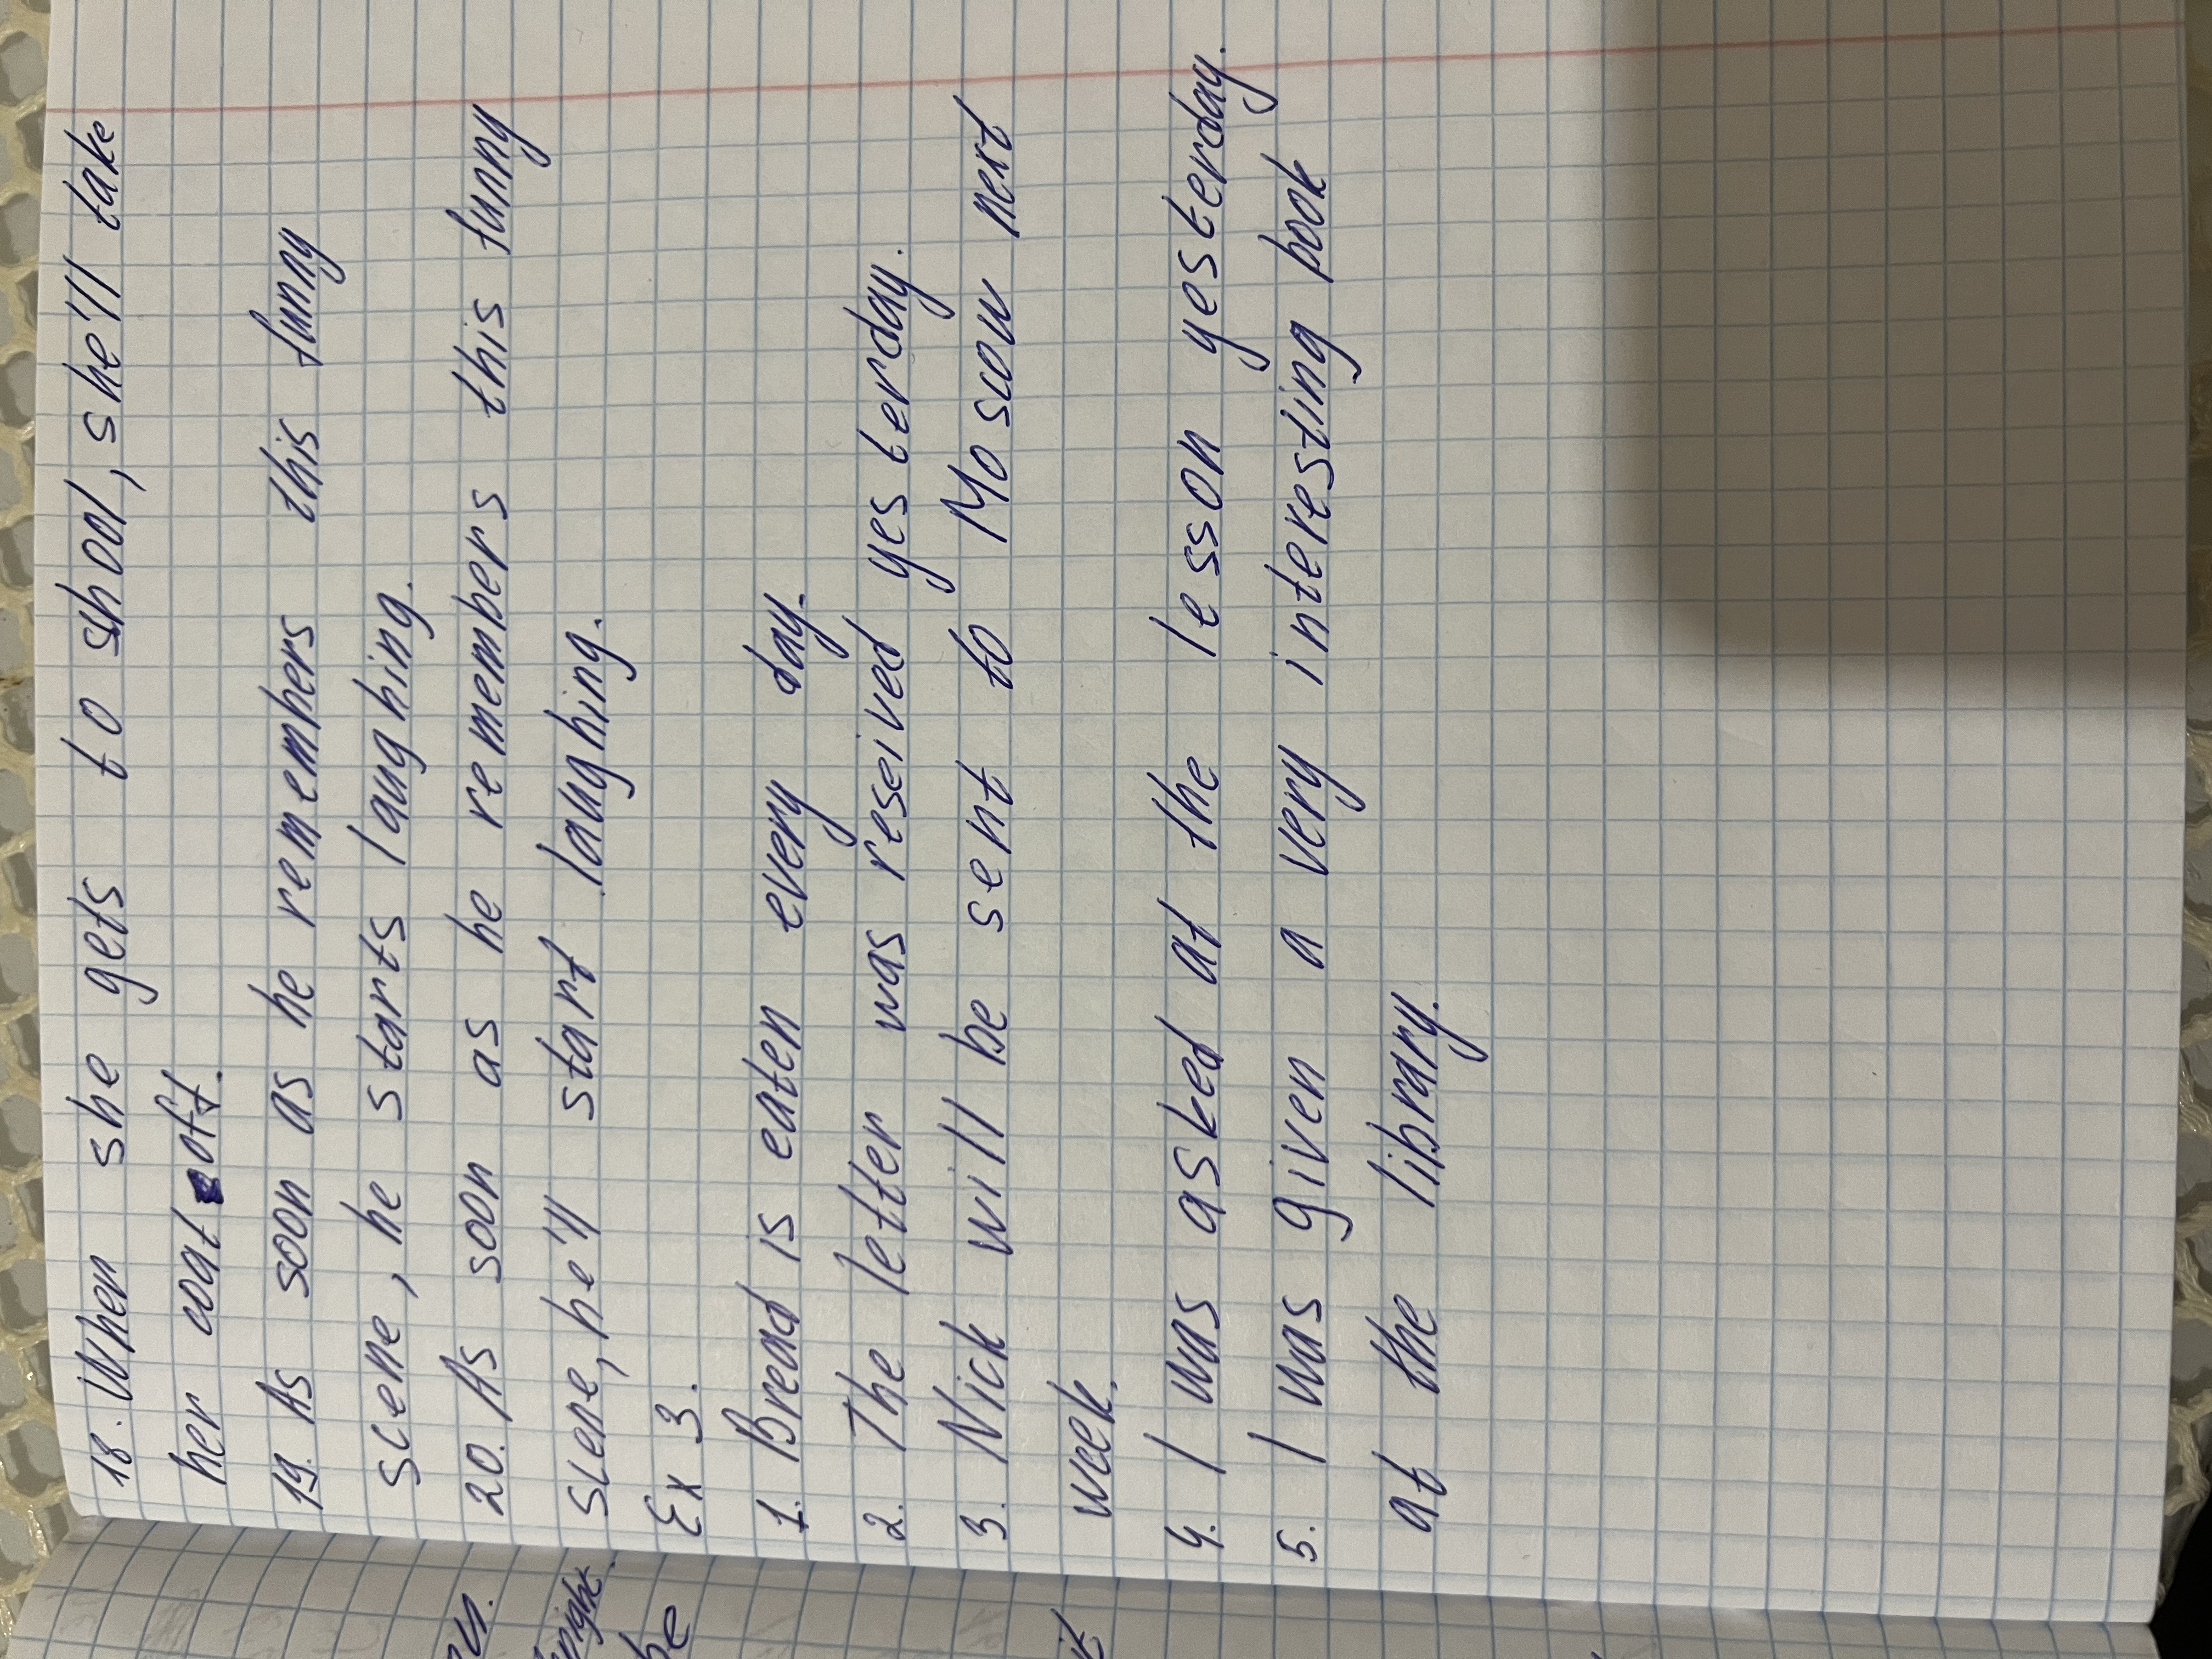 18. When she gets to school, she'll take
her coat off.
19. As soon as he remembers this funny
scene, he starts laughing.
20. As soon as he remembers this funny
scene, he'll start laughing.
Ex 3.
1. Bread is eaten every day.
2. The letter was reseived yesterday.
3. Nick will be sent to Moscow next
week.
4. I was asked at the lesson yesterday.
5. I was given a very interesting book
at the library.
be